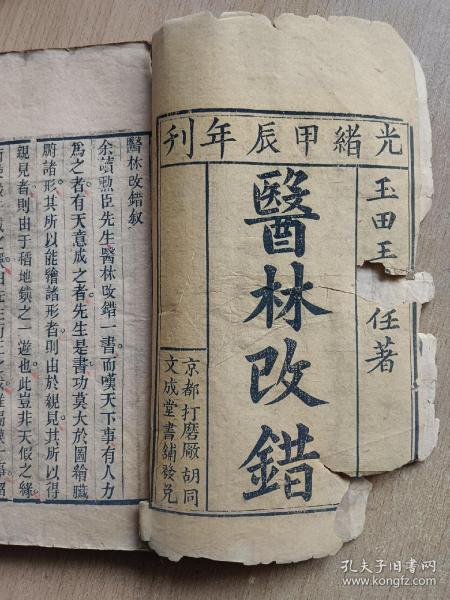 光緒甲辰年刊
玉田王 任著
醫林改錯
京都打磨廠胡同
文成堂書舖發兌
醫林改錯叙
余讀勲臣先生醫林改錯一書而嘆天下事有人力
為之者有天意成之者先生是書功莫大於圖繪臟
腑諸形其所以能繪諸形者則由於親見其所以得
親見者則由于稻地鎮之一遊也此豈非天假之緣
孔夫子旧书网
www.kongfz.com